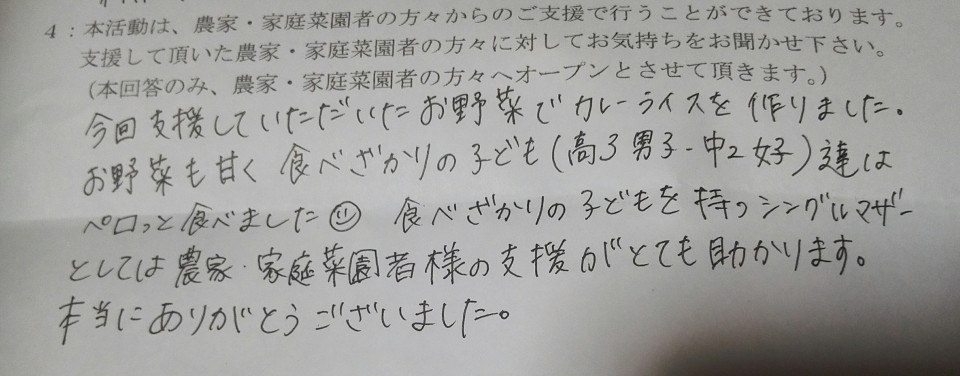 4：本活動は、農家・家庭菜園者の方々からのご支援で行うことができております。
支援して頂いた農家・家庭菜園者の方々に対してお気持ちをお聞かせ下さい。
(本回答のみ、農家・家庭菜園者の方々へオープンとさせて頂きます。)
今回支援していただいたお野菜でカレーライスを作りました。
お野菜も甘く食べざかりの子ども(高3男子・中2女子)達は
ペロっと食べました☺ 食べざかりの子どもを持つシングルマザー
としては農家・家庭菜園者様の支援がとても助かります。
本当にありがとうございました。